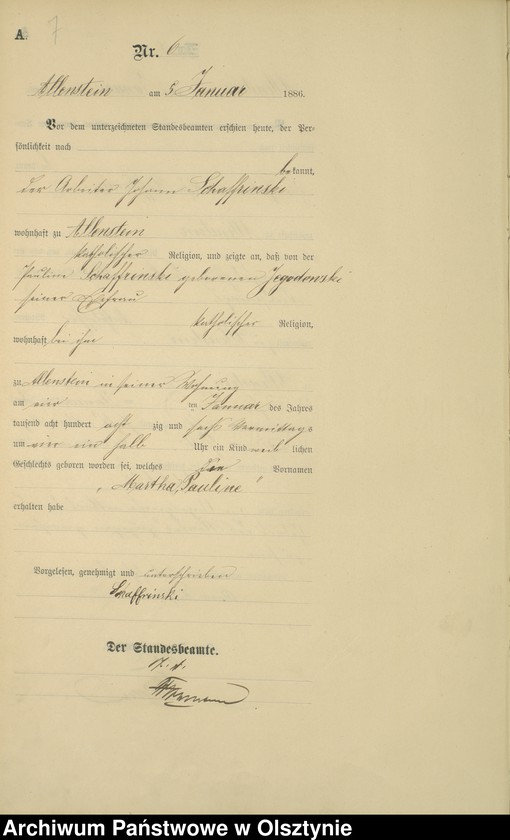 A. 7
Nr. 6
Allenstein am 5. Januar 1886.
Vor dem unterzeichneten Standesbeamten erschien heute, der Per-
sönlichkeit nach
bekannt,
der Arbeiter Johann Schaffrinski
wohnhaft zu Allenstein
katholischer Religion, und zeigte an, daß von der
Pauline Schaffrinski geborenen Jegodowski
seiner Ehefrau
katholischer Religion,
wohnhaft bei ihm
zu Allenstein in seiner Wohnung
am vier ten Januar des Jahres
tausend acht hundert acht zig und sechs Vormittags
um vier ein halb Uhr ein Kind weib lichen
Geschlechts geboren worden sei, welches die Vornamen
„Martha, Pauline"
erhalten habe
Vorgelesen, genehmigt und unterschrieben
Schaffrinski
Der Standesbeamte.
Archiwum Państwowe w Olsztynie